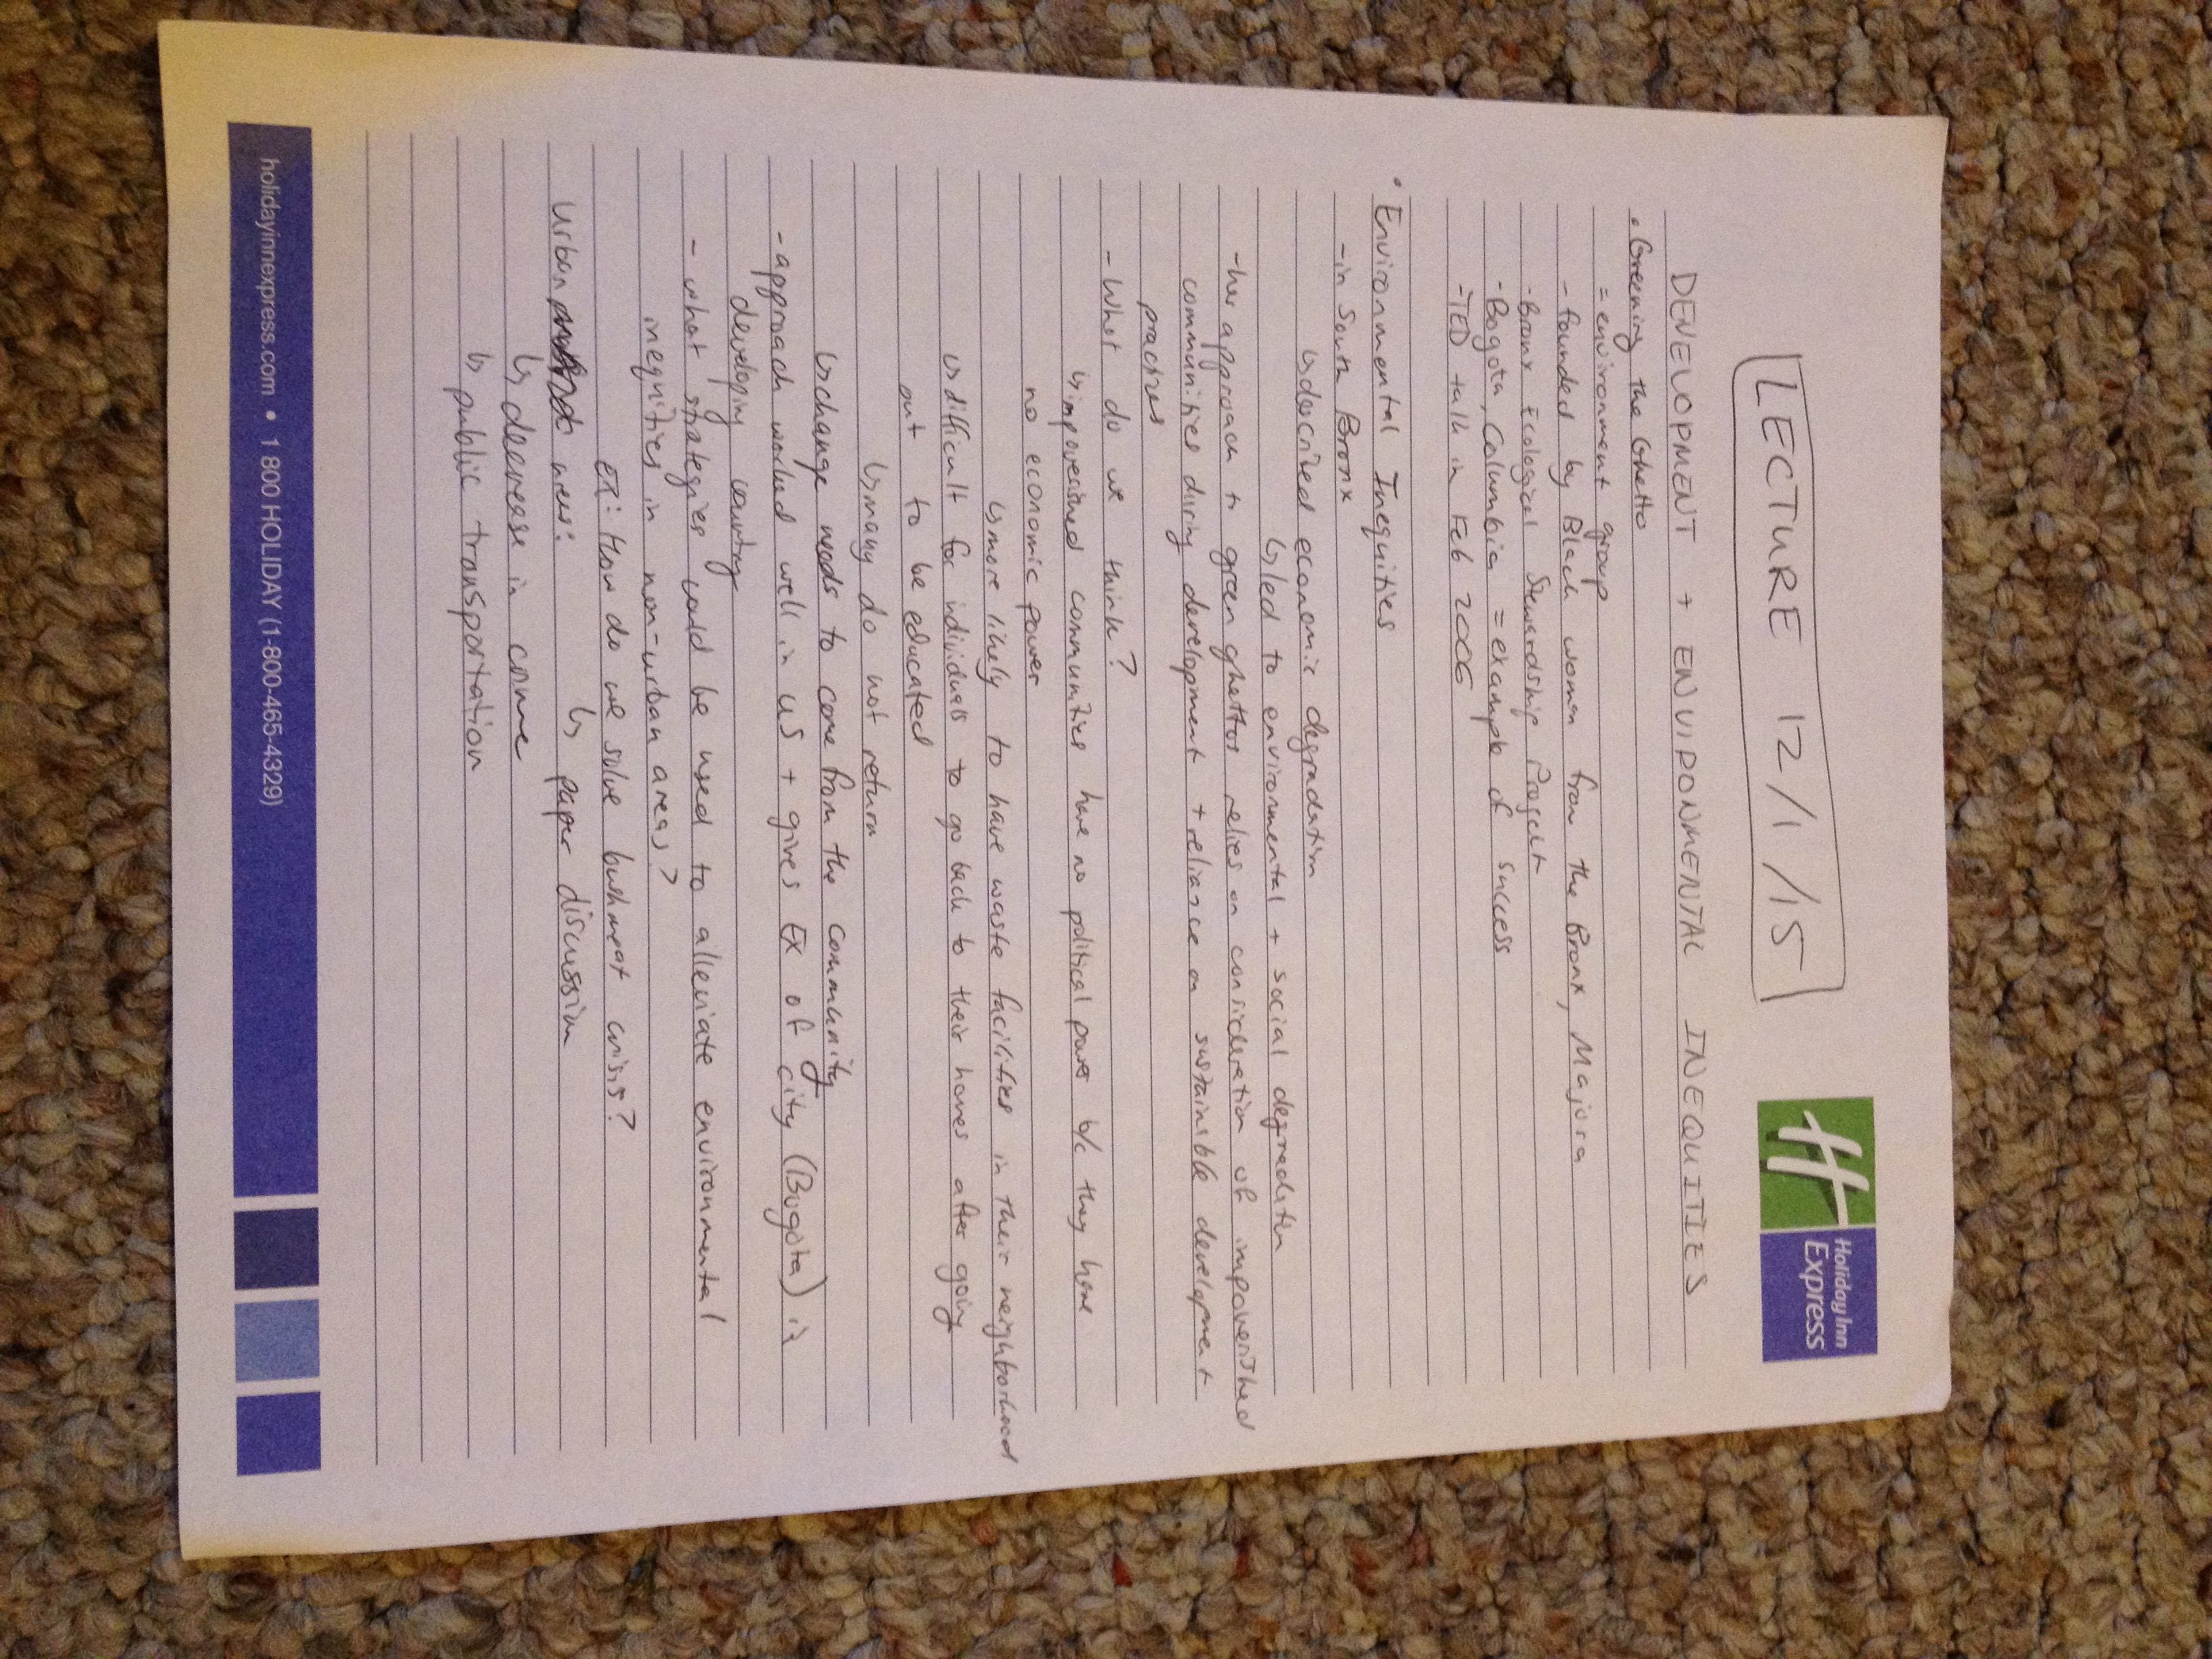 LECTURE 12/1/15
Holiday Inn
Express
DEVELOPMENT + ENVIRONMENTAL INEQUITIES
• Greening the Ghetto
= environment group
- founded by Black women from the Bronx, Majora
- Bronx Ecological Stewardship Project
- Bogota, Columbia = example of success
- TED talk in Feb 2006
• Environmental Inequities
- in South Bronx
↳ described economic degradation
↳ led to environmental + social degradation
- her approach to green ghettos relies on consideration of impoverished
communities during development + reliance on sustainible development
practices
- What do we think?
↳ impoverished communities have no political power b/c they have
no economic power
↳ more likely to have waste facilities in their neighborhood
↳ difficult for individuals to go back to their homes after going
out to be educated
↳ many do not return
↳ change needs to come from the community
- approach worked well in US + gives EX of city (Bogota) in
developing country
- what strategies could be used to alleviate environmental
inequities in non-urban areas?
EX: How do we solve bushmeat crisis?
↳ paper discussion
Urban areas:
↳ decrease in crime
↳ public transportation
holidayinnexpress.com • 1 800 HOLIDAY (1-800-465-4329)